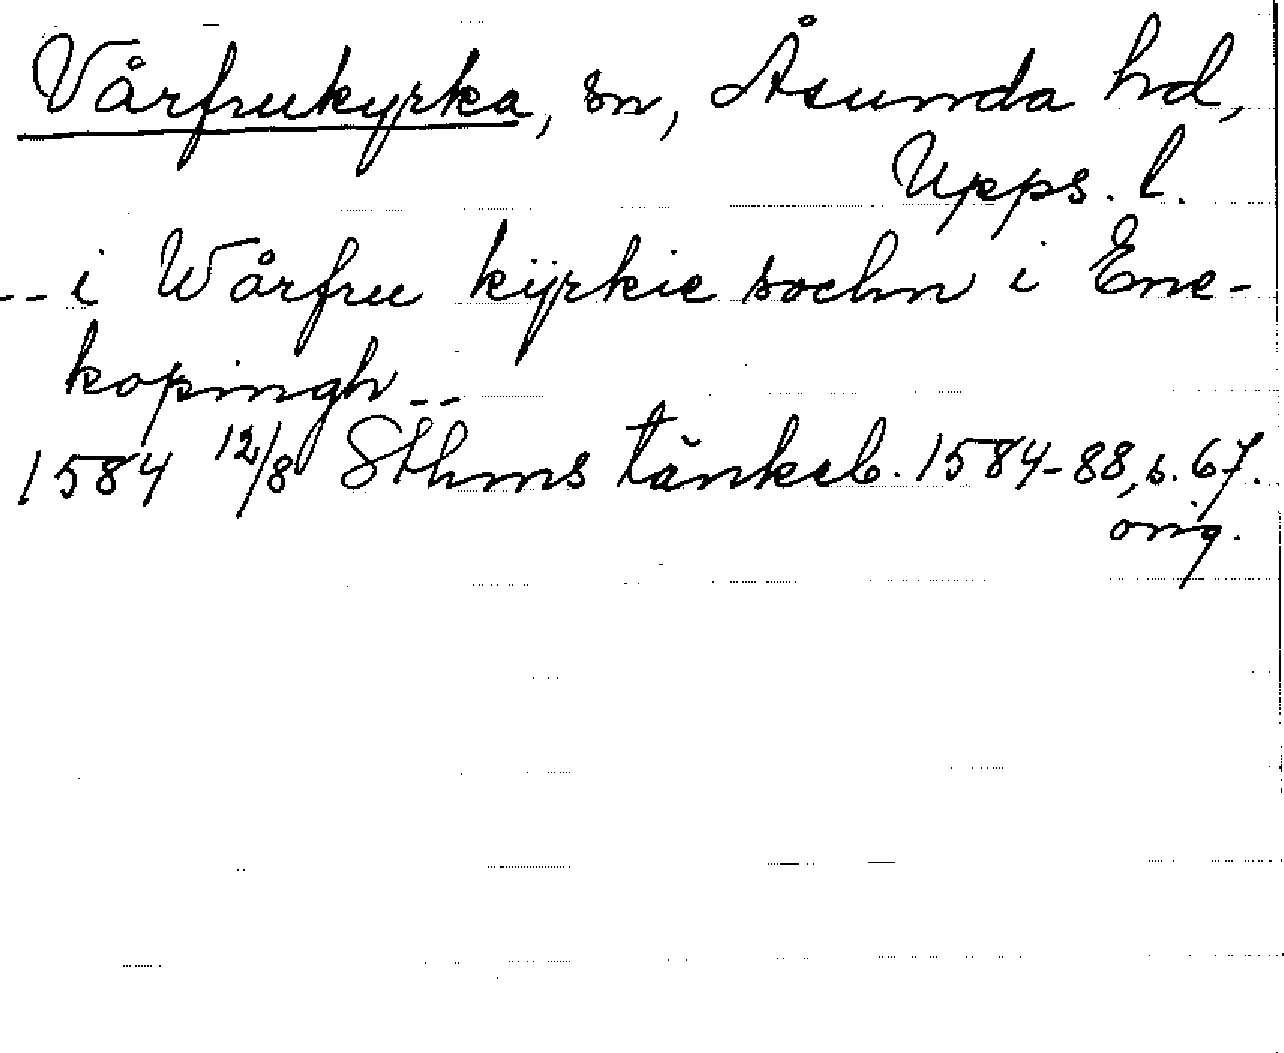 Vårfrukyrka, sn, Åsunda hd,
Upps. l.
-- i Wårfru kÿrkie sochn i Ene-
kopingh --
1584 12/8 Sthms tänkeb. 1584-88, s. 67.
orig.